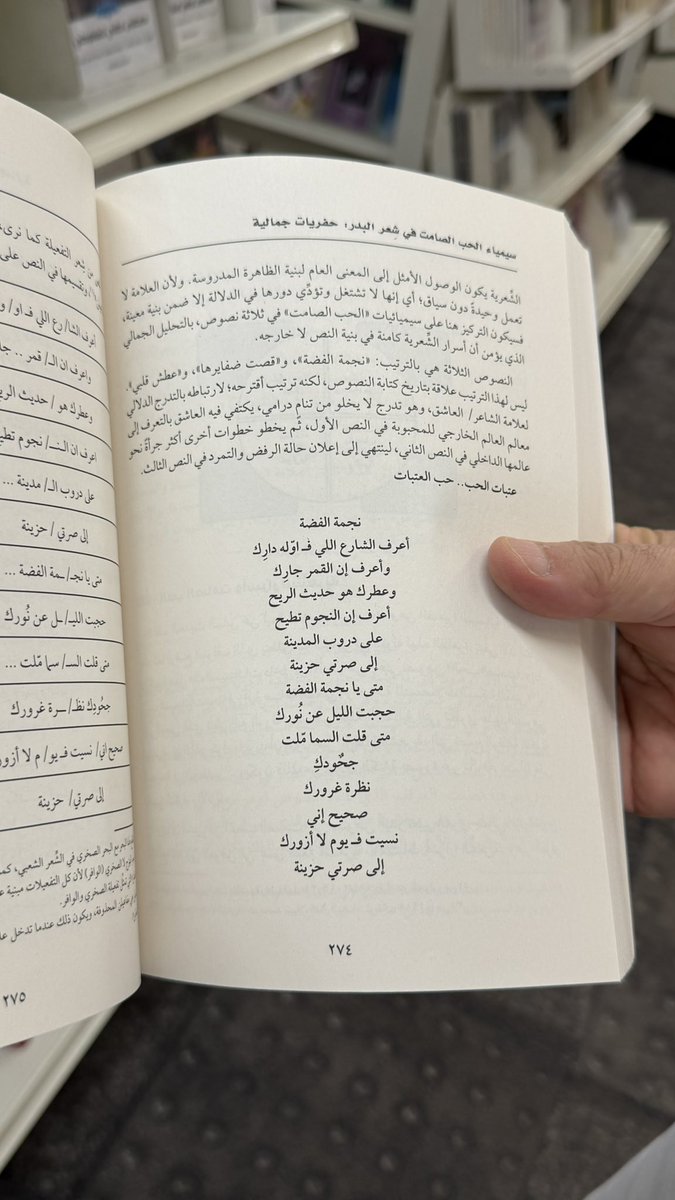 سيمياء الحب الصامت في شِعر البدر: حفريات جمالية
الشِّعرية يكون الوصول الأمثل إلى المعنى العام لبنية الظاهرة المدروسة. ولأن العلامة لا
تعمل وحيدةً دون سياق؛ أي إنها لا تشتغل وتؤدِّي دورها في الدلالة إلا ضمن بنية معينة،
فسيكون التركيز هنا على سيميائيات «الحب الصامت» في ثلاثة نصوص، بالتحليل الجمالي
الذي يؤمن أن أسرار الشِّعرية كامنة في بنية النص لا خارجه.
النصوص الثلاثة هي بالترتيب: «نجمة الفضة»، و«قصت ضفايرها»، و«عطش قلبي».
ليس لهذا الترتيب علاقة بتاريخ كتابة النصوص، لكنه ترتيب أقترحه؛ لارتباطه بالتدرج الدلالي
لعلامة الشاعر/ العاشق، وهو تدرج لا يخلو من تنامٍ درامي، يكتفي فيه العاشق بالتعرف إلى
معالم العالم الخارجي للمحبوبة في النص الأول، ثم يخطو خطوات أخرى أكثر جرأةً نحو
عالمها الداخلي في النص الثاني، لينتهي إلى إعلان حالة الرفض والتمرد في النص الثالث.
عتبات الحب.. حب العتبات
نجمة الفضة
أعرف الشارع اللي فـ اوّله دارِك
وأعرف إن القمر جارِك
وعطرك هو حديث الريح
أعرف إن النجوم تطيح
على دروب المدينة
إلى صرتي حزينة
متى يا نجمة الفضة
حجبت الليل عن نُورك
متى قلت السما مّلت
جحٌودكِ
نظرة غرورك
صحيح إني
نسيت فـ يوم لا أزورك
إلى صرتي حزينة
٢٧٤
من شعر التفعيلة كما نرى،
وتقسيمها في النص على
أعرف الشا/ رع اللي فـ او/
واعرف ان الـ/ قمر ..
وعطرك هو/ حديث الريح
اعرف ان النـ/ نجوم تطيح
على دروب الـ/ مدينة ...
إلى صرتي / حزينة
متى يا نجـ/ ـمة الفضة ...
حجبت الليـ/ ـل عن نُورك
متى قلت السـ/ سما مّلت ...
جحُودِك نظـ/ ـرة غرورك
صحيح اني/ نسيت فـ يو/ م لا أزور
إلى صرتي/ حزينة
البحر الصخري في الشِّعر الشعبي، كما
الصخري (الوافر) لأن كل التفعيلات مبنية
تفعيلة الصخري والوافر.
المحذوفة، ويكون ذلك عندما تدخل
٢٧٥